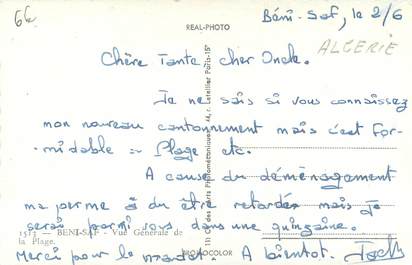 6e
REAL-PHOTO
Béni-Saf, le 2/6
ALGERIE
Chère Tante cher Oncle.
Je ne sais si vous connaissez
mon nouveau cantonnement mais c'est for-
midable :- Plage etc.
A cause du déménagement
ma perme a du être retardée mais je
serai parmi vous dans une quinzaine.
1513 - BENI-SAF - Vue Générale de
la Plage.
Merci pour le mandat. A bientot.
PROMOCOLOR
44, r. Letellier Paris-15e